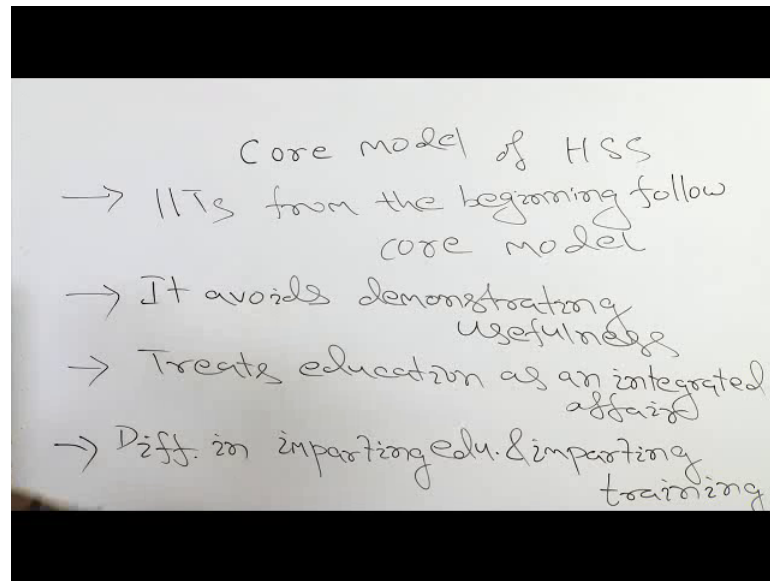 Core model of HSS
→ IITs from the beginning follow
core model
→ It avoids demonstrating
usefulness
→ Treats education as an integrated
affair
→ Diff. in imparting edu. & imparting
training